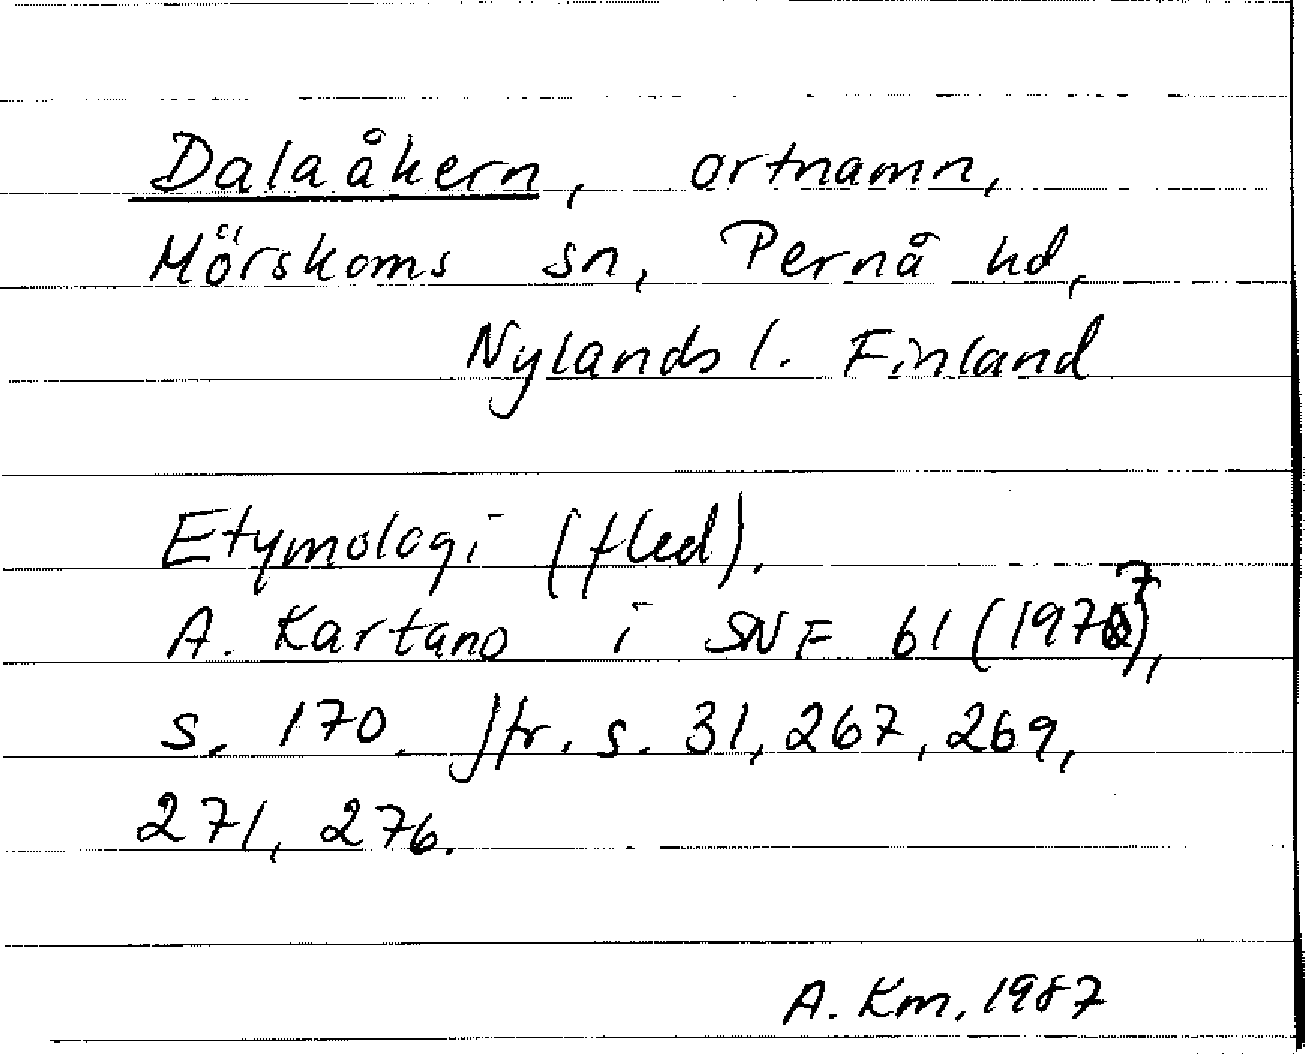 Dalaåkern, ortnamn,
Mörskoms sn, Pernå hd,
Nylands l. Finland
Etymologi (fled).
A. Kartano i SNF 61 (1977),
s. 170. Jfr. s. 31, 267, 269,
271, 276.
A. Km, 1987